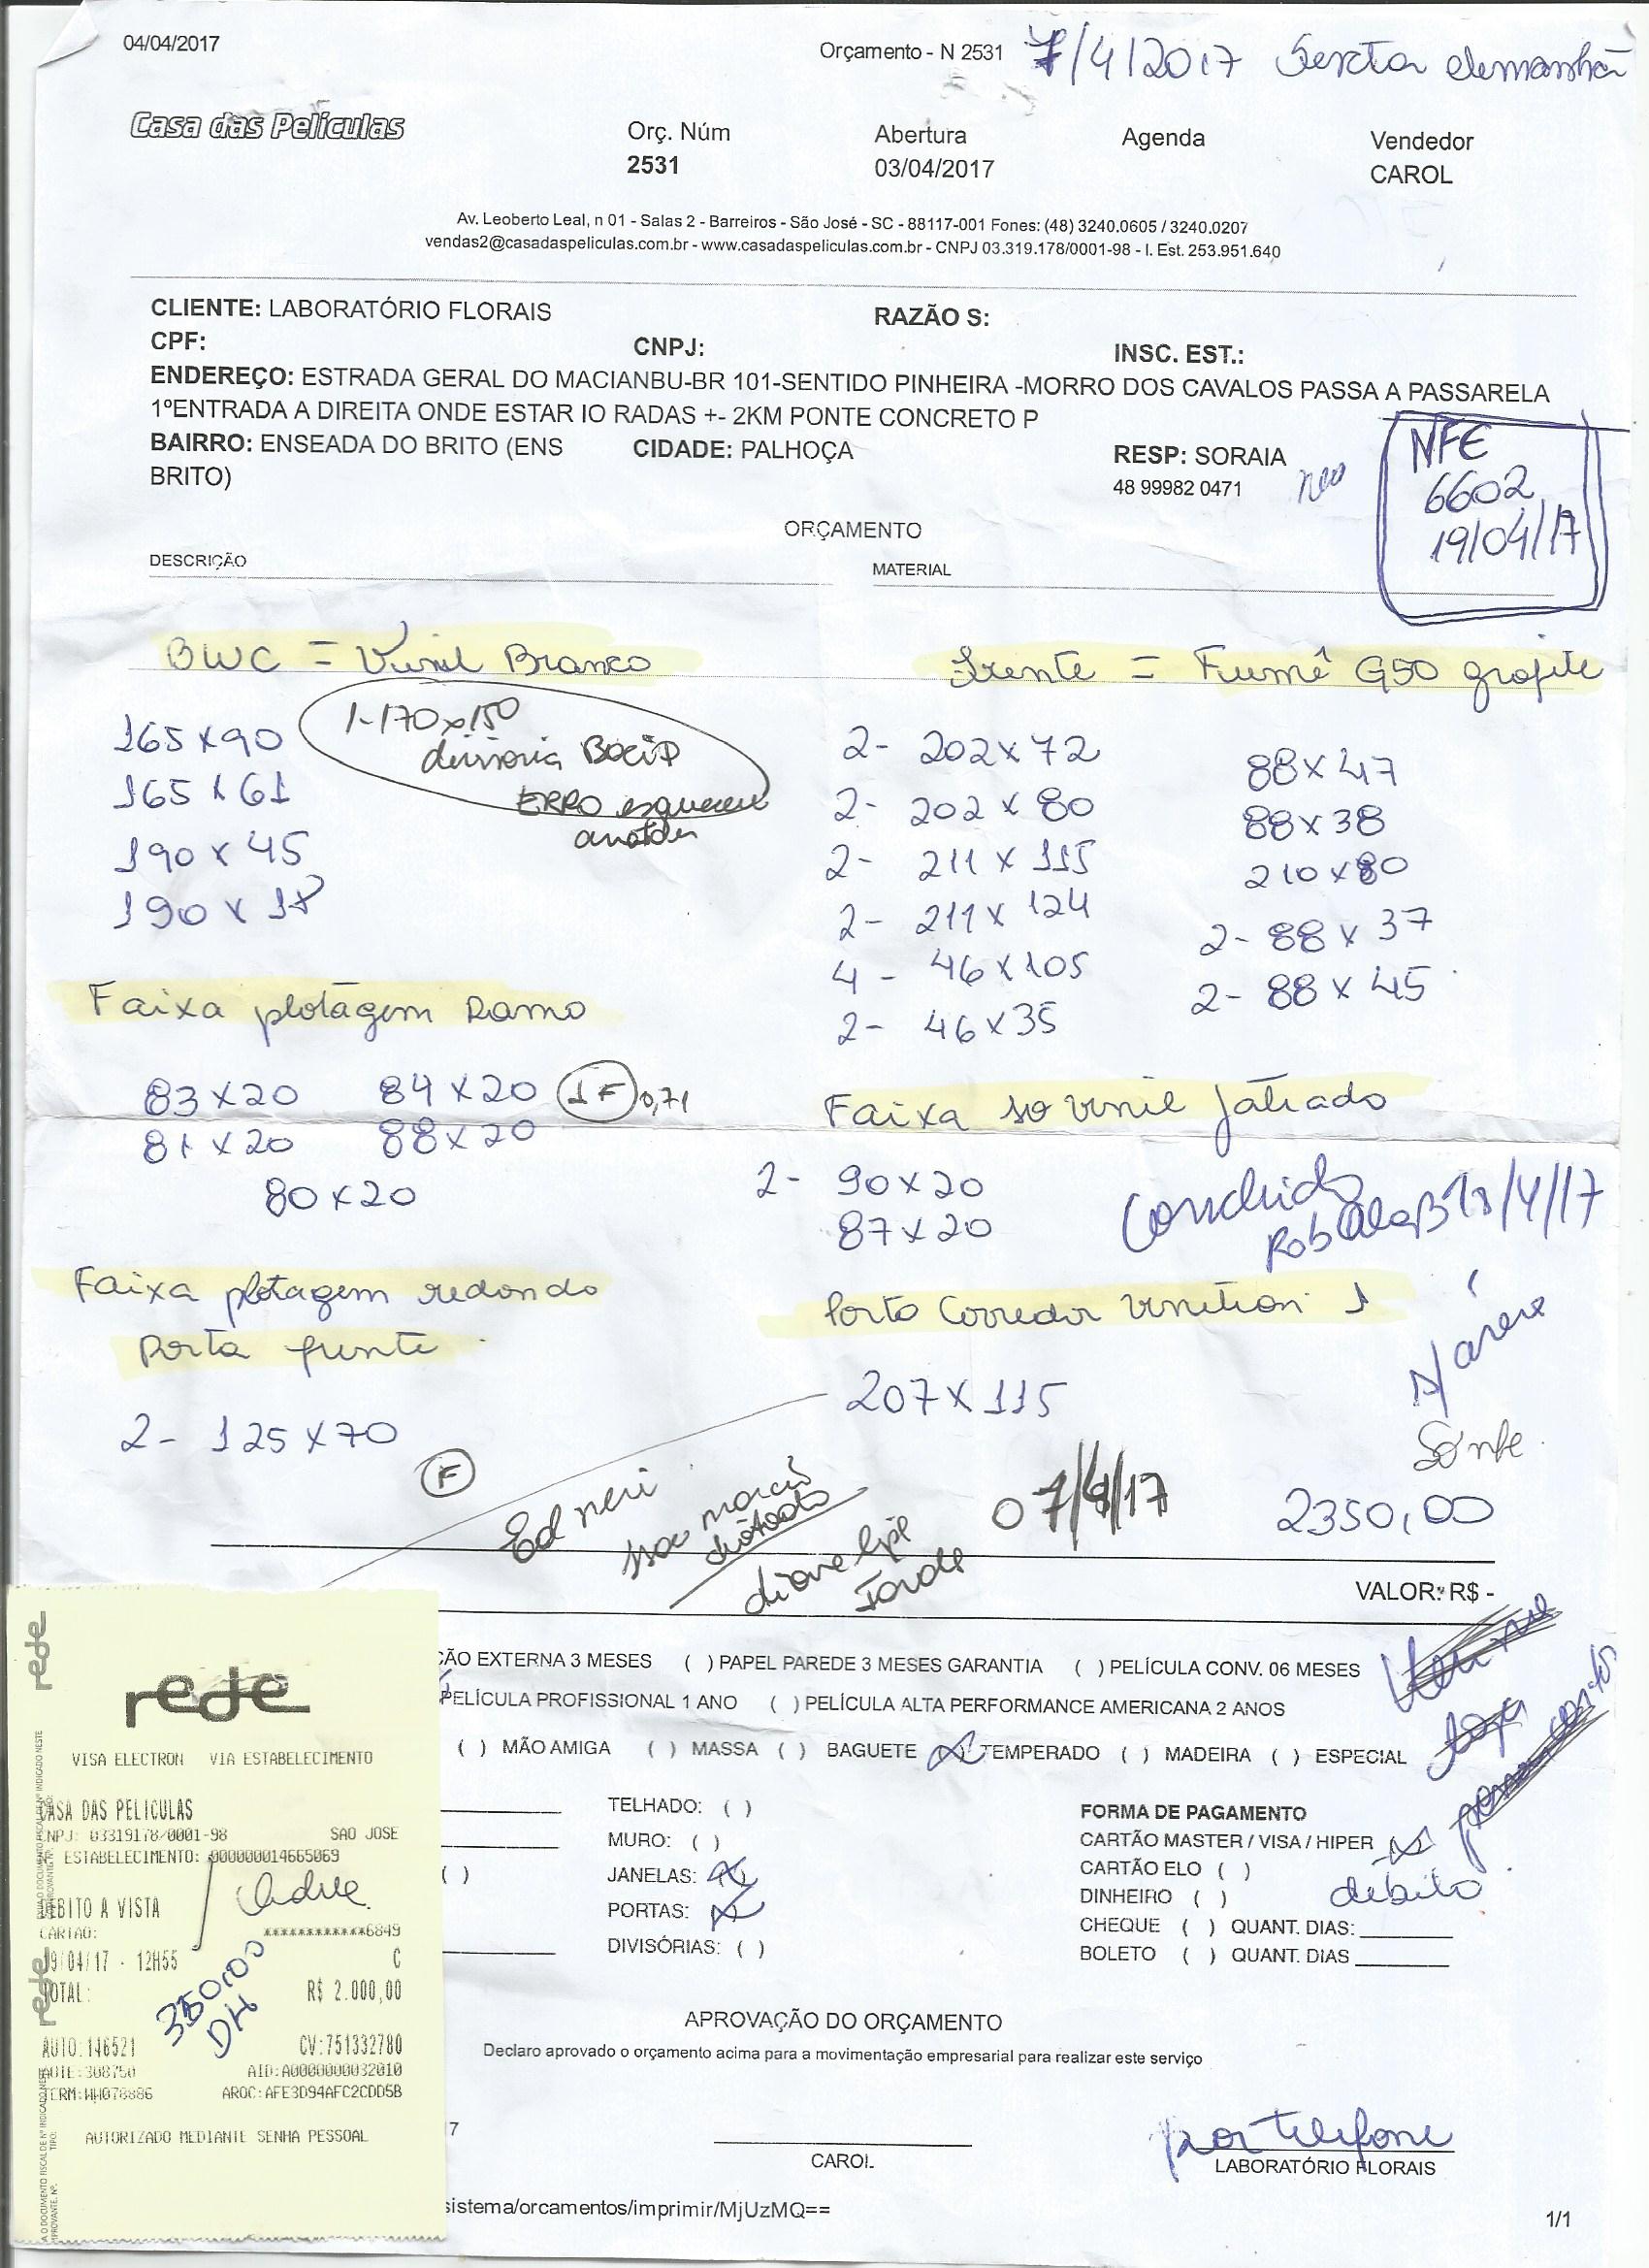 04/04/2017
Orçamento - N 2531 7/4/2017 Sexta de manhã
Casa das Películas
Orç. Núm Abertura Agenda Vendedor
2531 03/04/2017 CAROL
Av. Leoberto Leal, n 01 - Salas 2 - Barreiros - São José - SC - 88117-001 Fones: (48) 3240.0605 / 3240.0207
vendas2@casadaspeliculas.com.br - www.casadaspeliculas.com.br - CNPJ 03.319.178/0001-98 - I. Est. 253.951.640
CLIENTE: LABORATÓRIO FLORAIS RAZÃO S:
CPF: CNPJ: INSC. EST.:
ENDEREÇO: ESTRADA GERAL DO MACIANBU-BR 101-SENTIDO PINHEIRA -MORRO DOS CAVALOS PASSA A PASSARELA
1ºENTRADA A DIREITA ONDE ESTAR IO RADAS +- 2KM PONTE CONCRETO P
BAIRRO: ENSEADA DO BRITO (ENS BRITO) CIDADE: PALHOÇA RESP: SORAIA
48 99982 0471
NFE
6602
19/04/17
ORÇAMENTO
DESCRIÇÃO MATERIAL
BWC = Vinil Branco
165 x 90
165 x 61
190 x 45
190 x 18
1-170x150
divisoria
ERRO esqueceu
anotar
Frente = Fumê G50 grafite
2- 202 x 72
2- 202 x 80
2- 211 x 115
2- 211 x 124
4- 46 x 105
2- 46 x 35
88 x 47
88 x 38
210 x 80
2- 88 x 37
2- 88 x 45
Faixa plotagem Ramo
83 x 20 84 x 20 1F 0,71
81 x 20 88 x 20
80 x 20
Faixa so vinil jateado
2- 90 x 20
87 x 20
Concluido
18/4/17
Faixa plotagem redondo
Porta frente
2- 125 x 70
F
Porta Corredor
1
207 x 115
07/4/17
2350,00
VALOR: R$ -
ÇÃO EXTERNA 3 MESES ( ) PAPEL PAREDE 3 MESES GARANTIA ( ) PELÍCULA CONV. 06 MESES
PELÍCULA PROFISSIONAL 1 ANO ( ) PELÍCULA ALTA PERFORMANCE AMERICANA 2 ANOS
( ) MÃO AMIGA ( ) MASSA ( ) BAGUETE (X) TEMPERADO ( ) MADEIRA ( ) ESPECIAL
TELHADO: ( )
MURO: ( )
( ) JANELAS: (X)
PORTAS: (X)
DIVISÓRIAS: ( )
FORMA DE PAGAMENTO
CARTÃO MASTER / VISA / HIPER (X)
CARTÃO ELO ( )
DINHEIRO ( ) debito
CHEQUE ( ) QUANT. DIAS:
BOLETO ( ) QUANT. DIAS
APROVAÇÃO DO ORÇAMENTO
Declaro aprovado o orçamento acima para a movimentação empresarial para realizar este serviço
7
CAROL
por telefone
LABORATÓRIO FLORAIS
sistema/orcamentos/imprimir/MjUzMQ==
1/1
rede
rede
VISA ELECTRON VIA ESTABELECIMENTO
CASA DAS PELICULAS
CNPJ: 03319178/0001-98 SAO JOSE
ESTABELECIMENTO: 000000014665069
DEBITO A VISTA
CARTAO: ************6849
19/04/17 - 12H55 C
TOTAL: R$ 2.000,00
350,00
DH
AUTO:146521 CV:751332780
AUTE:308750 AID:A0000000032010
TERM:WW078886 ARQC:AFE3D94AFC2CDD5B
AUTORIZADO MEDIANTE SENHA PESSOAL
rede